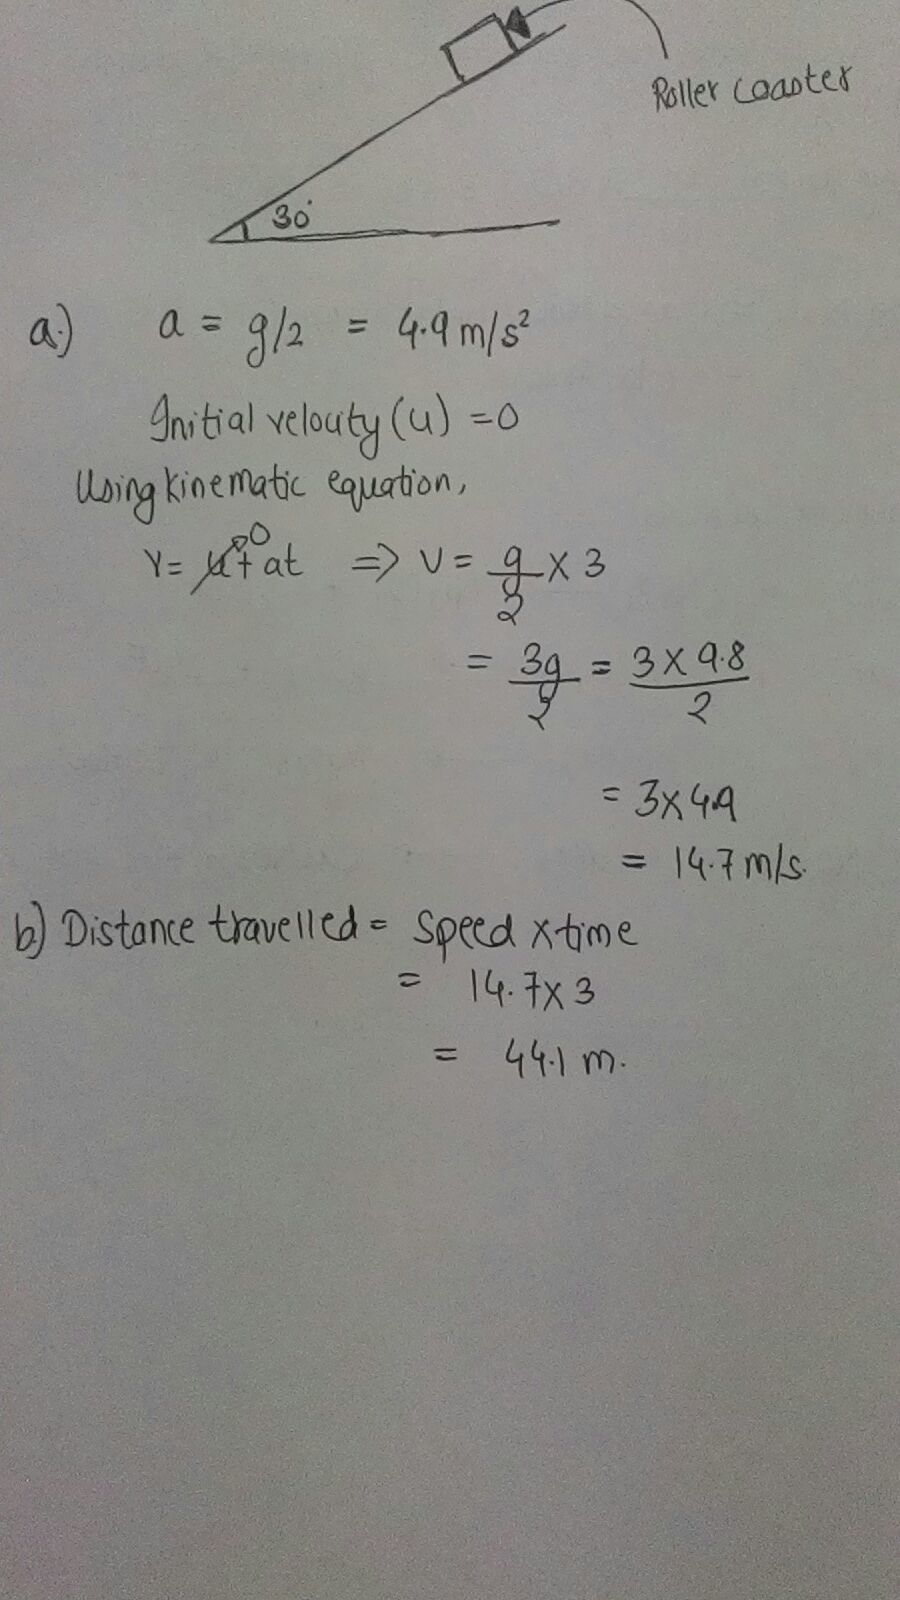 Roller coaster
30°
a.) a = g/2 = 4.9 m/s²
Initial velocity (u) = 0
Using kinematic equation,
V = u + at 0 ⇒ V = g/2 × 3
= 3g/2 = 3 × 9.8/2
= 3 × 4.9
= 14.7 m/s.
b.) Distance travelled = Speed × time
= 14.7 × 3
= 44.1 m.